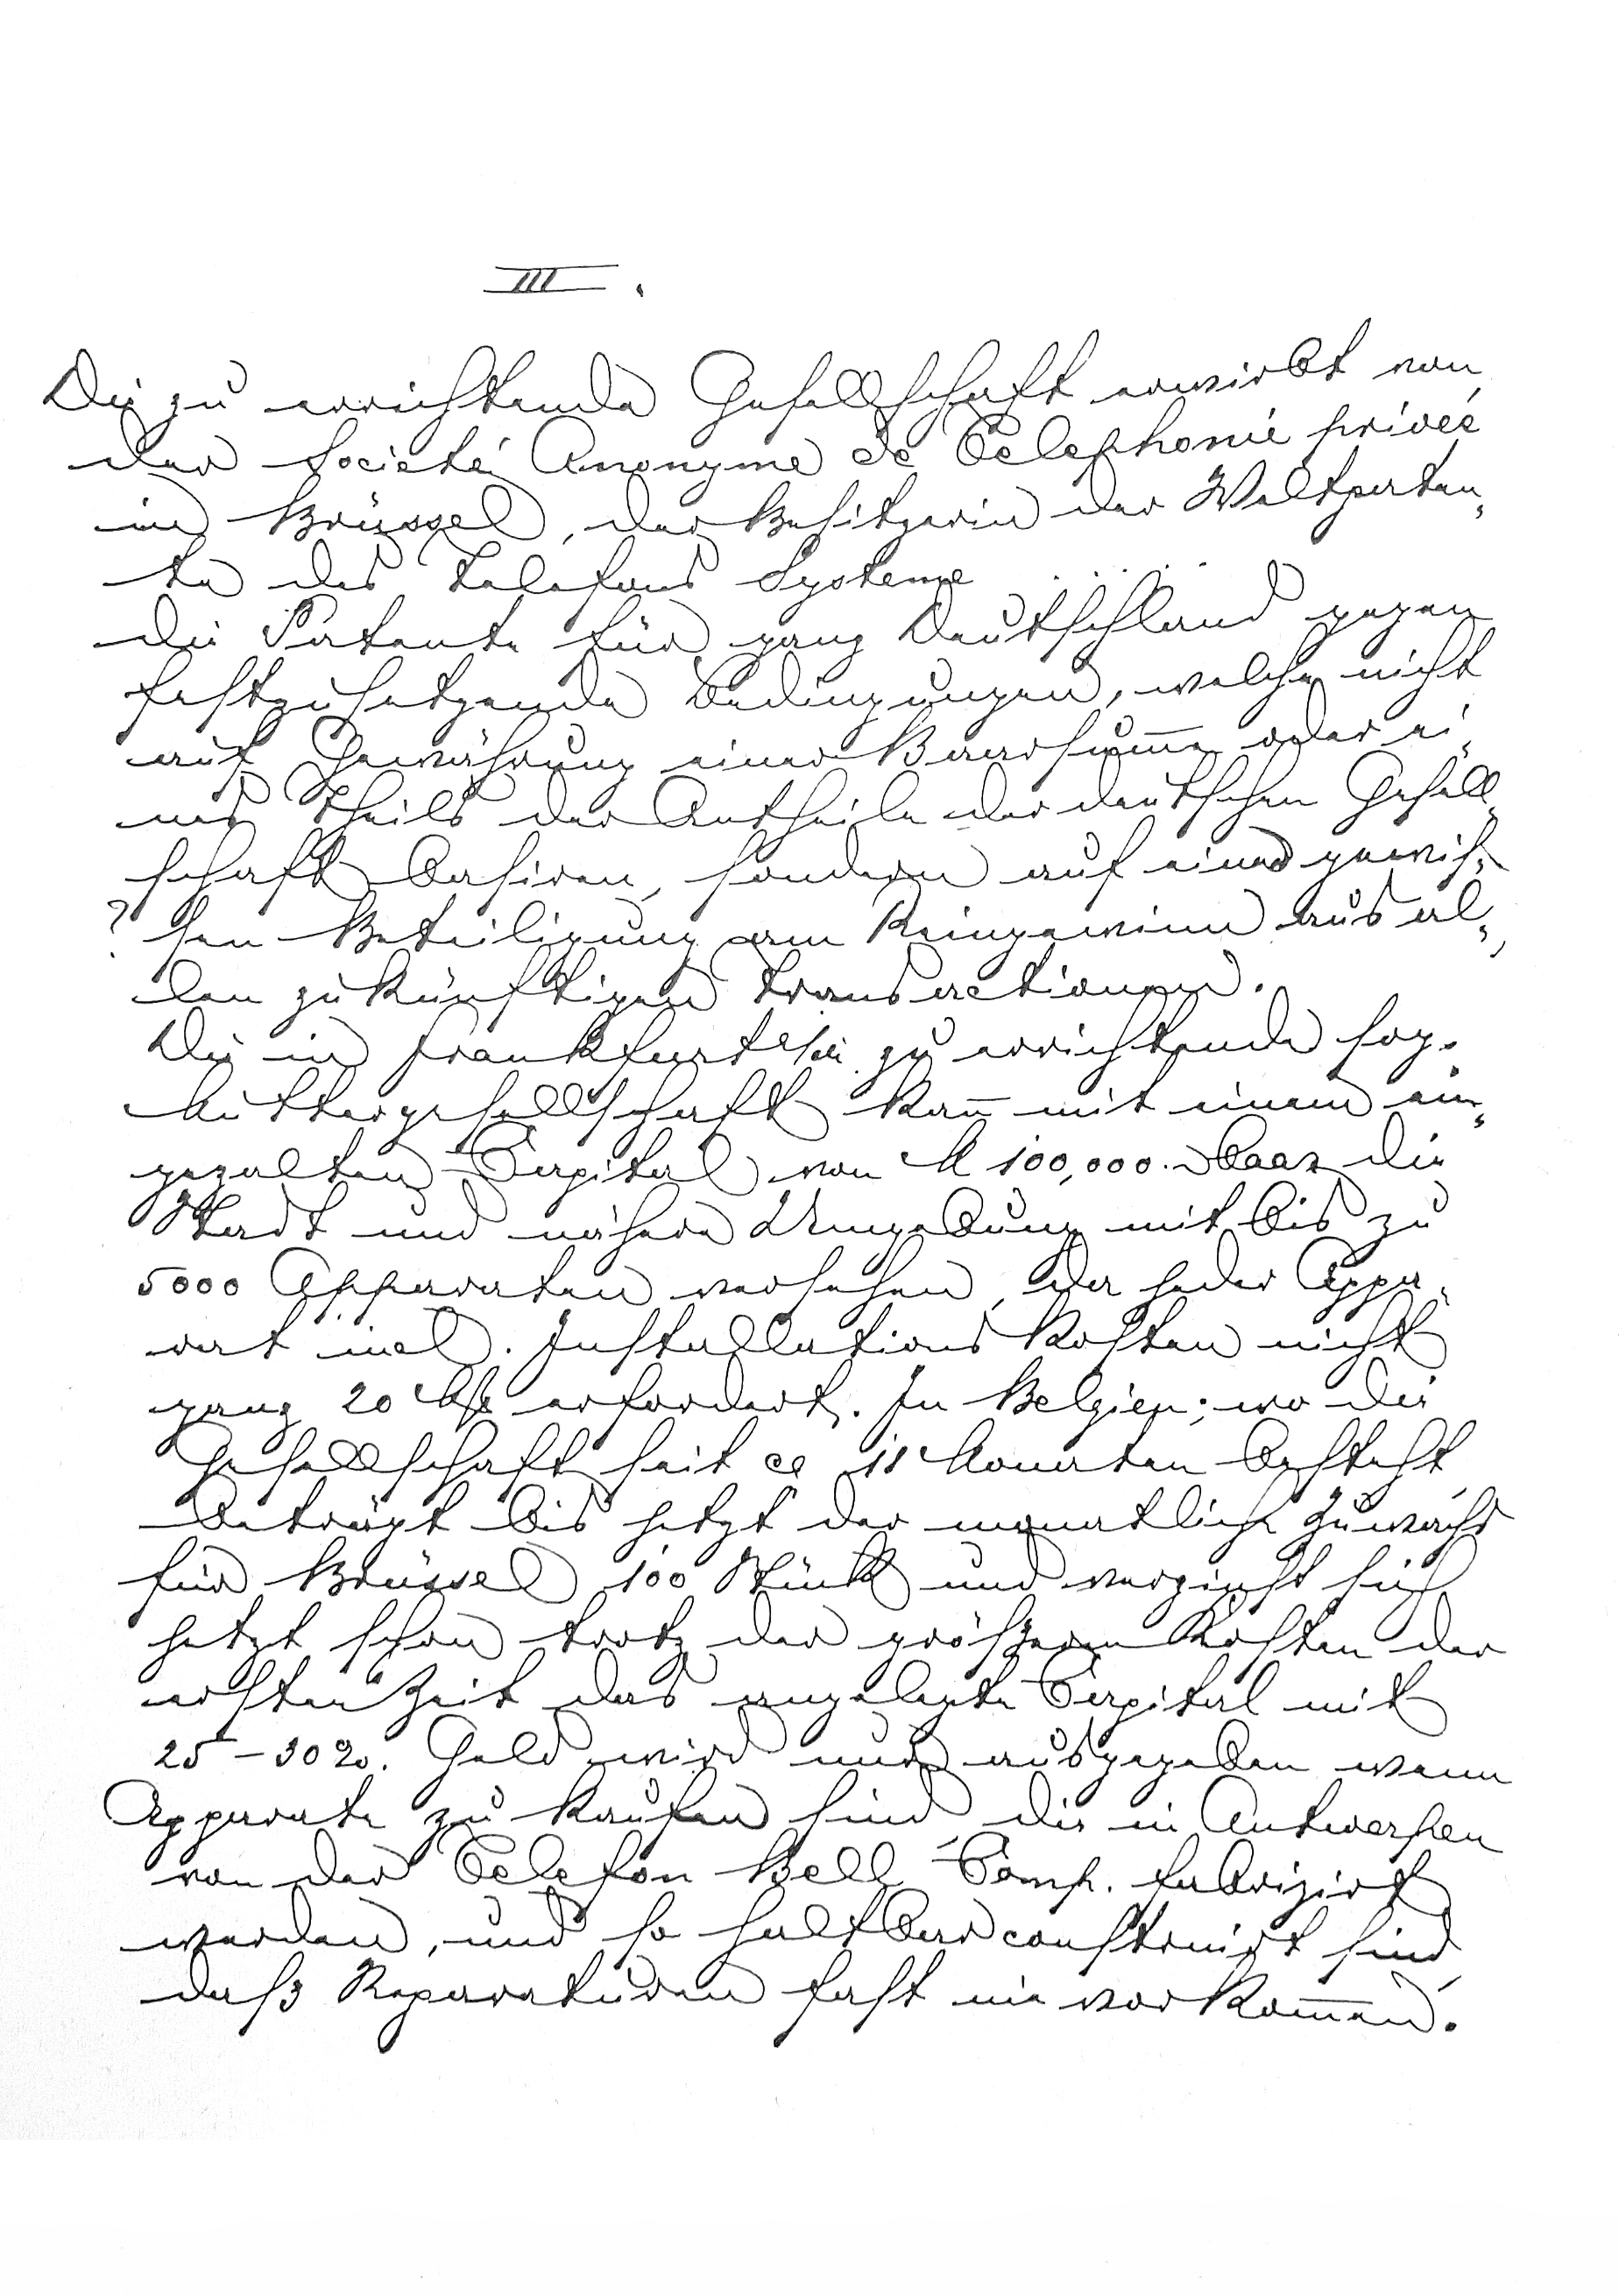 III.
Die zu errichtende Gesellschaft erwirbt von
der Societé Anonyme de Telephonie privée
in Brüssel, der Besitzerin der Weltpaten-
te des Telefons Systeme . . . . .
die Patente für ganz Deutschland gegen
festzusetzende Bedingungen, welche nicht
auf Gewährung einer Baarsum̅e oder ei-
nes Theils der Antheile der deutschen Gesell-
schaft basiren, sondern auf einer gewis-
? sen Beteiligung am Reingewinn aus al-
len zukünftigen Transactionen.
Die in Frankfurt a/M zu errichtende sog.
Muttergesellschaft kan̅ mit einem ein-
gezalten Capital von M 100,000. baar die
Stadt und nähere Umgebung mit bis zu
5000 Apparaten versehen, da jeder Appa-
rat incl. Installations Kosten nicht
ganz 20 Mk erfordert. In Belgien, wo die
Gesellschaft seit ca 11 Monaten besteht,
beträgt bis jetzt der monatliche Zuwachs
für Brüssel 100 Stück und verzinst sich
jetzt schon trotz der größeren Kosten der
ersten Zeit das angelegte Capital mit
25 – 30%. Geld wird nur ausgegeben wenn
Apparate zu kaufen sind, die in Antwerpen
von der Telefon Bell Comp. fabrizirt
werden, und so haltbar construirt sind,
daß Reparaturen fast nie vorkom̅en.